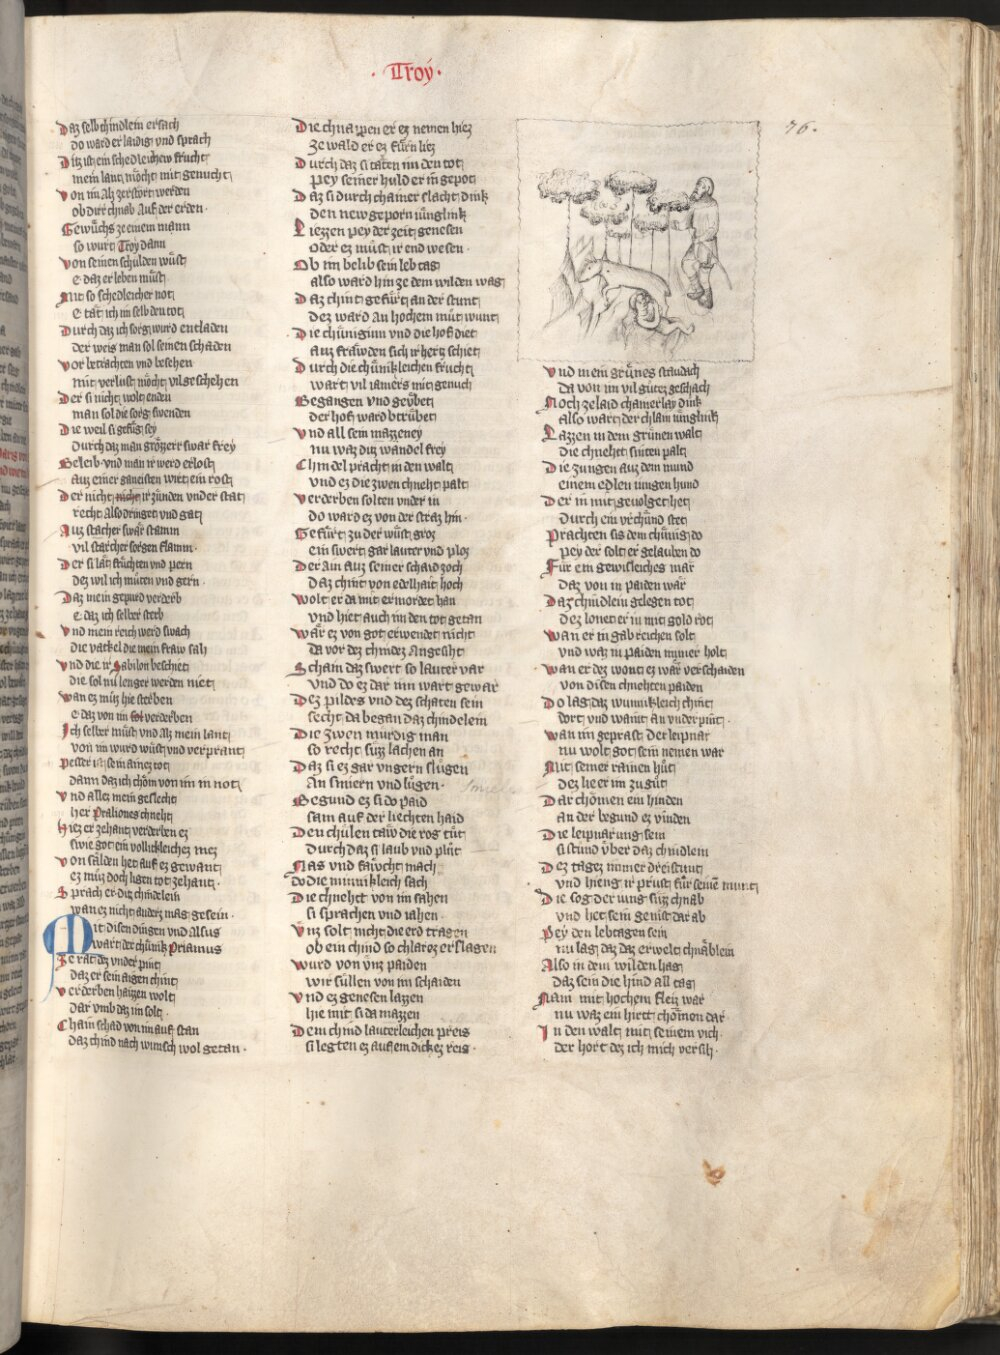 · Troy ·
76.
Daz selb chindlein ersach
do ward er laidig und sprach
Ditz ist ein schedleichew frucht
mein lant möcht mit genucht
von im Alz zerstört werden
ob dirr chnab Auf der erden ·
Gewüchs ze einem mann
so wurt Troy dann
von seinen schulden wüst
E daz er leben müst
Mit so schedleicher not
E tät ich im selb den tot
Durch daz ich sorg wurd entladen
der weis man sol seinen schaden
vor betrachten und besehen
mit verlust möcht vil geschehen
Der si nicht wolt enden
man sol die sorg swenden
Die weil si gefüg sey
Durch daz man grözzerr swär frey
Beleib und man ir werd erlost
auz einer ganeisten wirt ein rost
Der nicht nicht ir zünden under stat
recht Also dringet und gat
Auz stacher swär stamm
vil starcher sorgen flamm ·
Der si lät früchten und pern
dez wil ich müten und gern ·
Daz mein gepurd verderb
E daz ich selber sterb
Und mein reich werd swach
die vackel die mein fraw sah
Und die ir Sabilon beschiet
die sol nu lenger werden niet
wan ez müz hie sterben
E daz von im sol verderben
Ich selber müst und Alz mein lant
von im wurd wüst und verprant
Pesser ist sein ainez tot
dann daz ich chöm von im in not
Und allez mein geslecht
her Praliones chneht
Hiez er zehant verderben ez
swie got ein vollichleichez mez
Von sälden het auf ez gewant
ez müz doch ligen tot zehant ·
Sprach er diz chindelein
wan ez nicht anderz mag gesein ·
Mit disen dingen und Alsus
wart der chünik Priamus
Ze rat dez under pint
daz er sein aigen chint
Verderben haizzen wolt
dar umb daz im solt ·
Chain schad von im auf stan
daz chind nach wunsch wol getan ·
Die chnappen er ez nemen hiez
Ze wald er ez fürn liez
Durch daz si täten im den tot
pey seiner huld er in gepot
Daz si durch chainer slacht dink
den new geporn iünglink
Liezzen pey der zeit genesen
oder ez müst ir end wesen ·
Ob im belib sein leb tag
also ward hin ze dem wilden wag
Daz chint gefürt an der stunt
Dez ward An hochem müt wunt
Die chüniginn und die hof diet
auz fräwden sich ir hertz schiet
Durch die chünikleichen frucht
wart vil iamers mit genuch
Begangen und geübet
der hof ward betrübet
Und all sein mazzeney
nu waz diz wandel frey
Chindel pracht in den walt
und ez die zwen chneht palt
Verderben solten under in
do ward ez von der straz hin ·
Gefürt zu der wüst groz
ein swert gar lauter und ploz
Der Ain auz seiner schaid zoch
daz chint von edelhait hoch
Wolt er da mit ermordet han
und hiet auch im den tot getan
wär ez von got erwendet nicht
da vor dez chindez Angesiht
Schain daz swert so lauter var
Und do ez dar inn wart gewar
Dez pildes und dez schaten sein
secht da began daz chindelein
Die zwen mürdig man
so recht süzz lachen an
Daz si ez gar ungern slugen
An smiern und lügen ·
Begund ez si do paid
sam auf der liechten haid
Den chülen taw die ros tüt
durch daz si laub und plüt
Nas und fäwcht mach
do die minnikleich sach
Die chneht von im sahen
si sprachen und iahen ·
Unz solt nicht die erd tragen
ob ein chind so chlarez erslagen
Wurd von unz paiden
wir süllen von im schaiden
Und ez genesen lazzen
hie mit si da mazzen
Dem chind lauterleichen preis
si legten ez auf ein dickez reis ·
Und in ein grünes staudach
da von im vil gütez geschach
Noch ze laid chainer lay dink
Also wart der chlain iünglink
Lazzen in dem grünen walt
die chneht sniten palt
Die zungen auz dem mund
einem edlen iungen hund
Der in mit gevolget het
Durch ein urchünd stet
Prachten sis dem chünig do
pey der solt er gelauben do
Für ein gewisleiches mär
daz von in paiden wär
Daz chindlein gelegen tot
Dez lonet er in mit gold rot
Wan er in gab reichen solt
und waz in paiden immer holt
Wan er dez wont ez wär verschaiden
von disen chnehten paiden
Do lag daz wunnikleich chint
dort und waint an under pint ·
Wan im geprast der leipnar
nu wolt got sein nemen war
Mit seiner rainen hüt
dez lie er im zu güt
Dar chömen ein hinden
An der begund ez vinden
Die leipnarung sein
si stünd über daz chindlein
Dez tagez immer dreistunt
und hieng ir prüst für seinen munt
Die sog der iung süzz chnab
und het sein genist dar ab
Pey den lebtagen sein
nu lag daz daz erwelt chnäblein
Also in dem wilden hag
daz sein die hind all tag
Nam mit hochem fleiz war
nu waz ein hirtt chömen dar ·
In den walt mit seinem vich ·
der hort dez ich mich versih ·